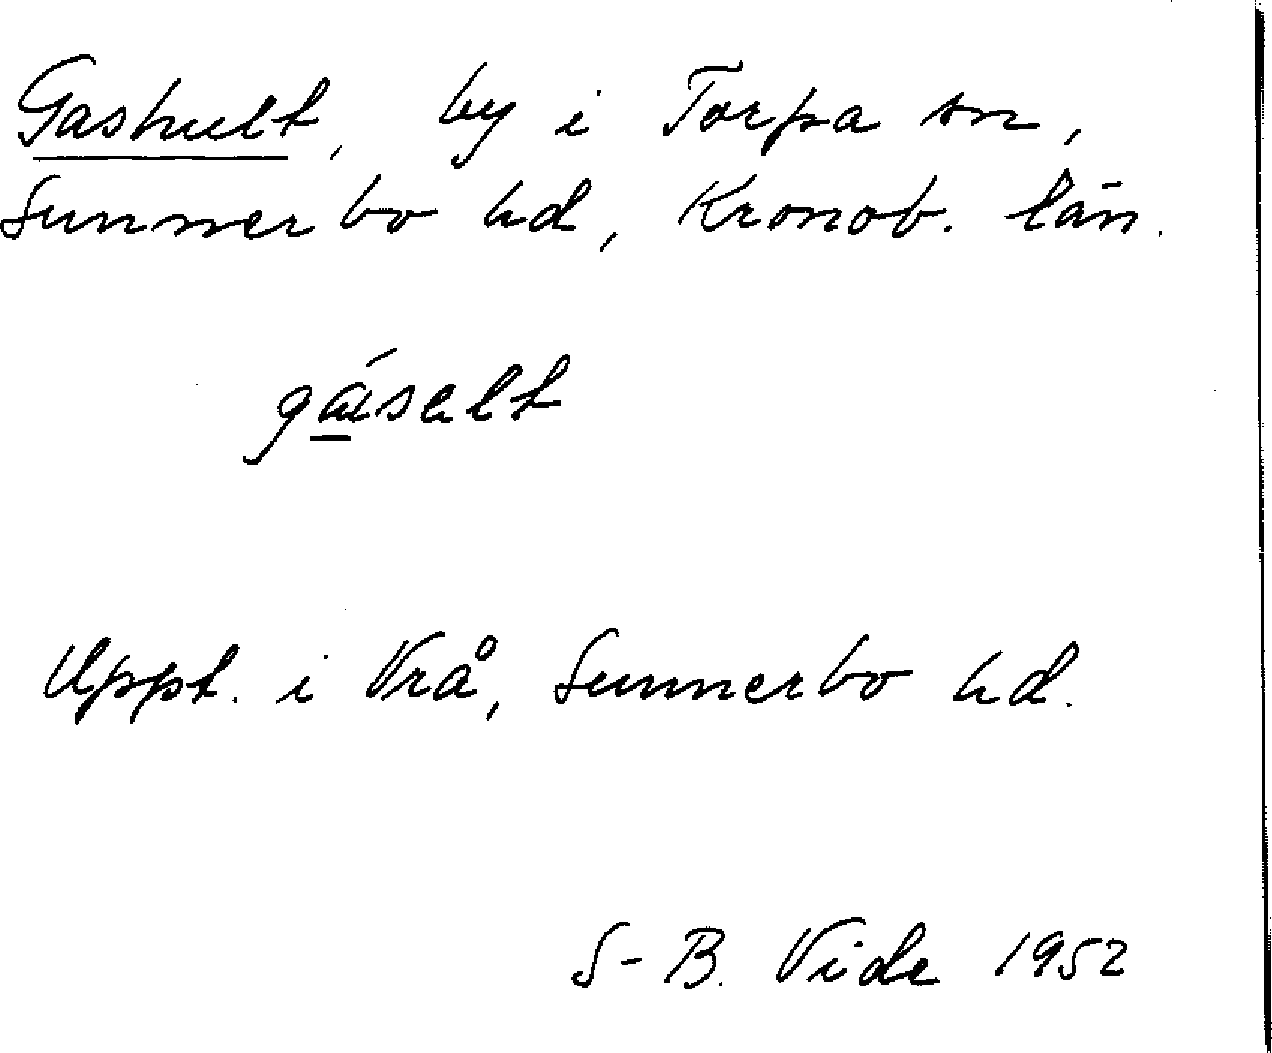 Gashult, by i Torpa sn,
Sunnerbo hd, Kronob. län.
gá̱sәlt
Uppt. i Vrå, Sunnerbo hd.
S-B. Vide 1952